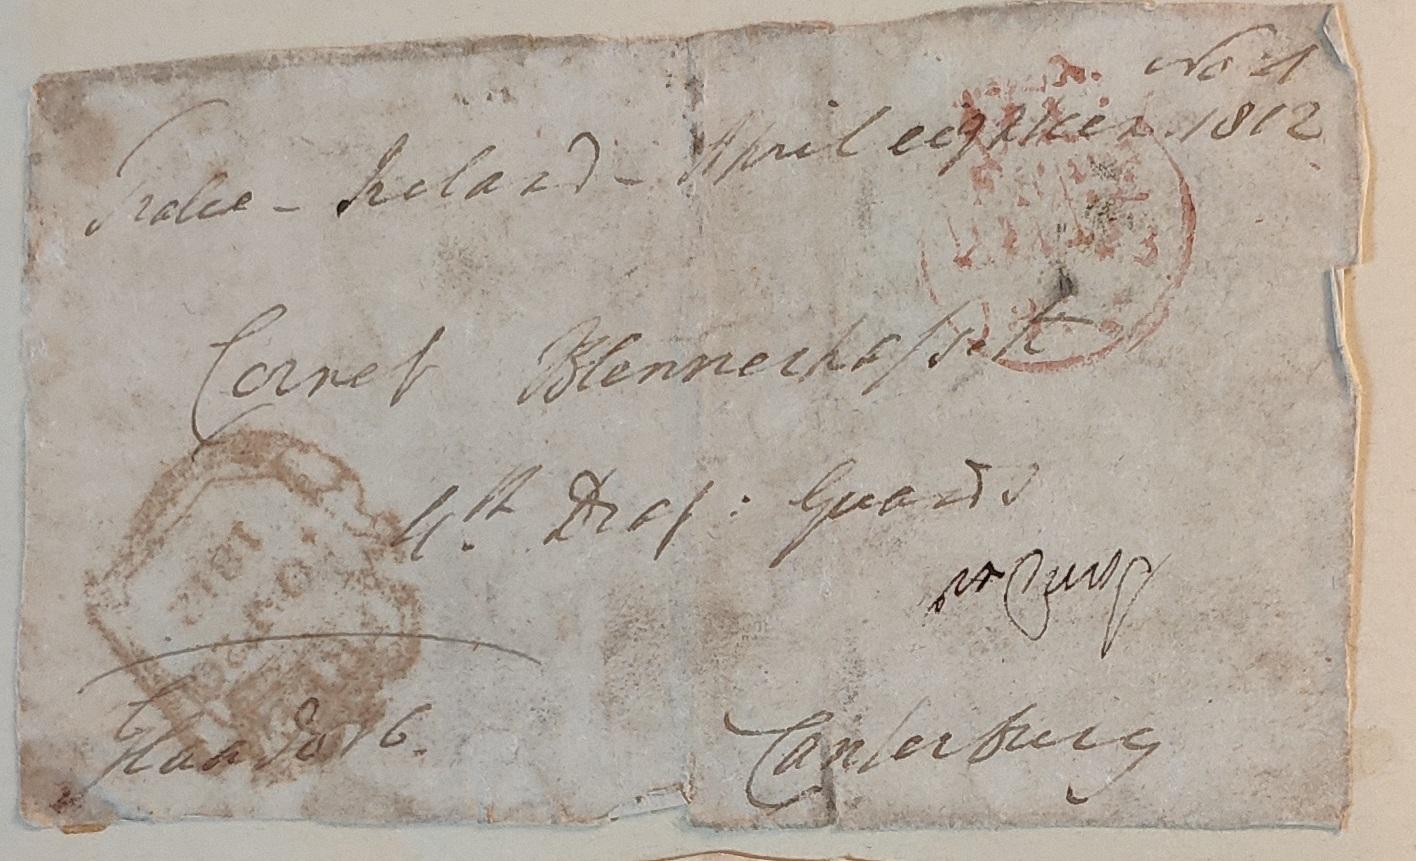 No 1
Tralee - Ireland - April eighteen. 1812
Cornet Blennerhassett
4th Drag: Guards
Canterbury
1812